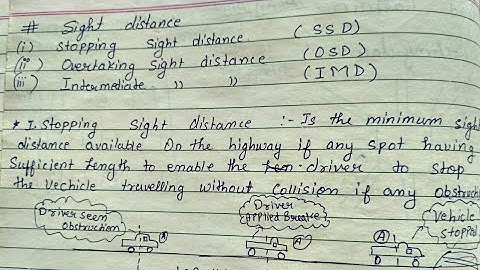 # Sight distance
(i) Stopping Sight distance (SSD)
(ii) Overtaking Sight distance (OSD)
(iii) Intermediate " " (IMD)
* I. Stopping Sight distance :- Is the minimum sight
distance available On the highway if any spot having
Sufficient length to enable the driver to stop
the Vechicle travelling without Collision if any Obstructi
Driver Seen
Obstruction
Driver
Applied Breake
Vehicle
Stopped
A
A
A